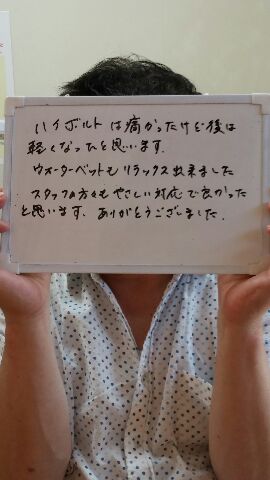 ハイボルトは痛かったけど後は
軽くなったと思います.
ウォーターベットもリラックス出来ました
スタッフの方々もやさしい対応で良かった
と思います、ありがとうございました.